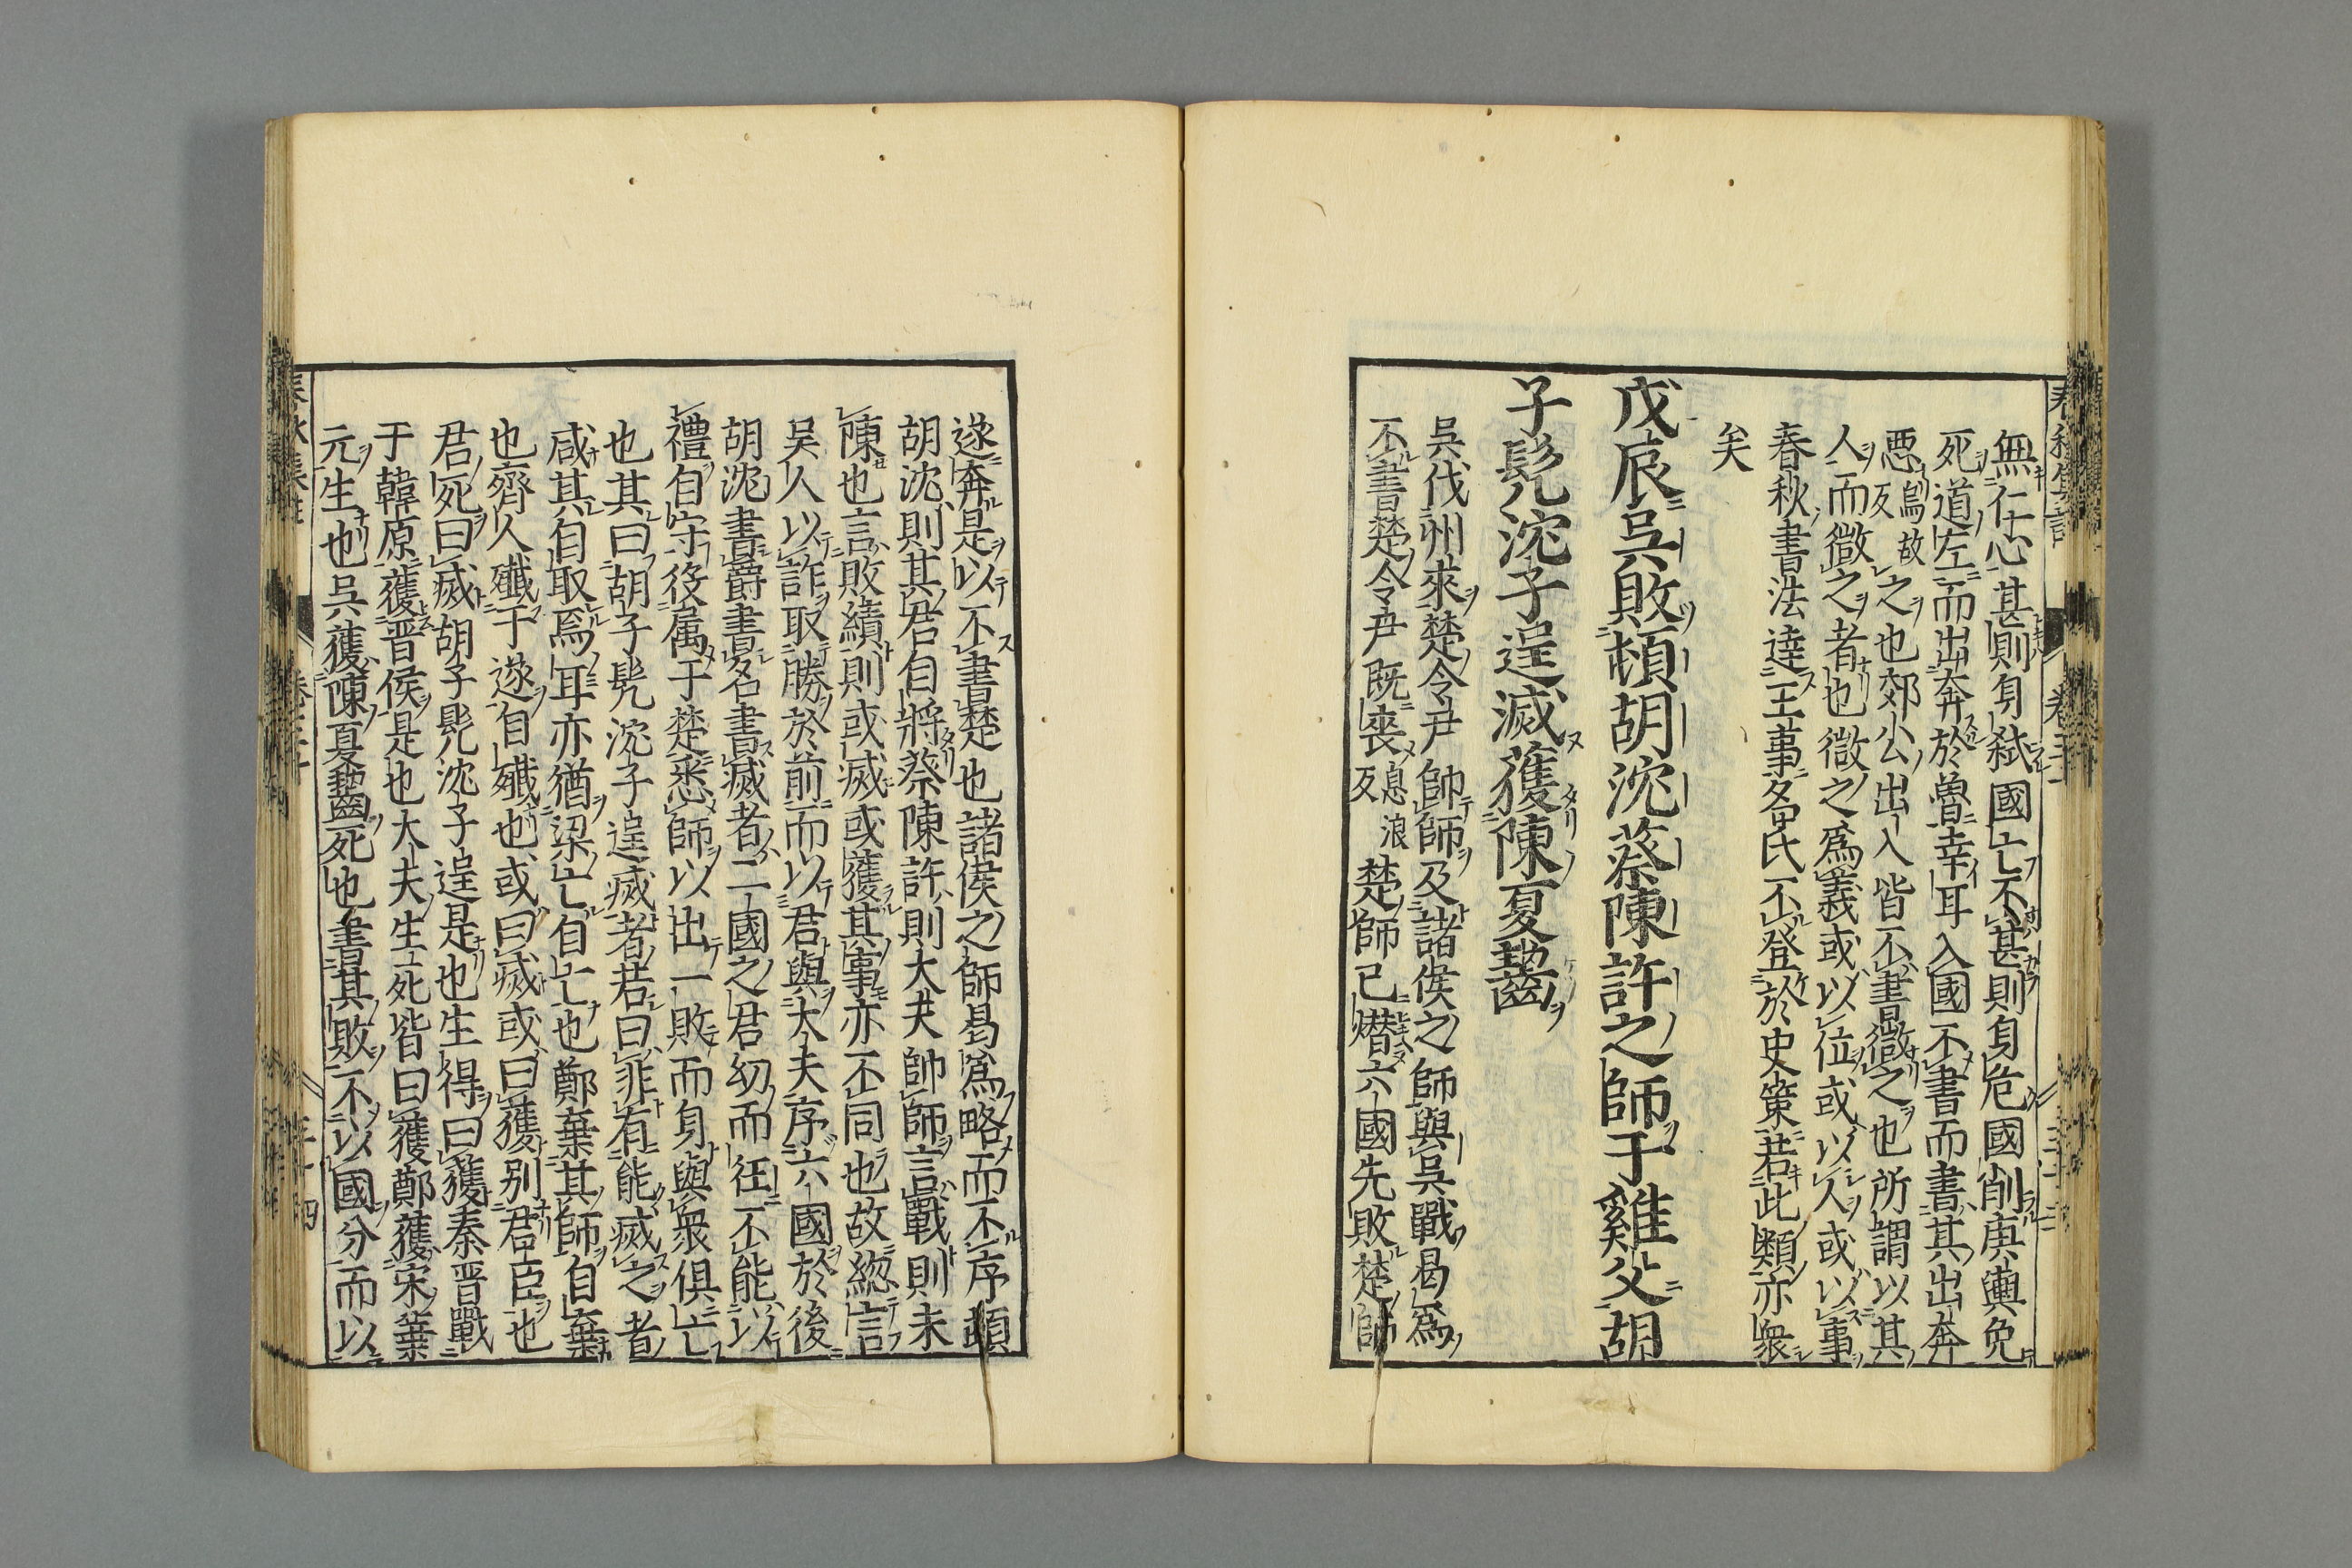 無仁心甚則身弑國亡不甚則身危國削庚輿免
死道左而出奔於魯幸耳入國不書而書其出奔
惡烏故反之也郊公出入皆不書微之也所謂以其
人而微之者也微之爲義或以位或以人或以事
春秋書法達王事名氏不登於史策若此類亦衆
矣
戊辰吳敗頓胡沈蔡陳許之師于雞父胡
子髡沈子逞滅獲陳夏齧
吳伐州來楚令尹帥師及諸侯之師與吳戰曷爲
不書楚令尹既喪息浪反楚師已熸六國先敗楚師
遂奔是以不書楚也諸侯之師曷爲略而不序頓
胡沈則其君自將蔡陳許則大夫帥師言戰則未
陳也言敗績則或滅或獲其事亦不同也故總言
吳人以詐取勝於前而以君與大夫序六國於後
胡沈書爵書名書滅者二國之君幼而狂不能以
禮自守役屬于楚悉師以出一敗而身與衆俱亡
也其曰胡子髡沈子逞滅者若曰非有能滅之者
咸其自取焉耳亦猶梁亡自亡也鄭棄其師自棄
也齊人殲于遂自殲也或曰滅或曰獲別君臣也
君死曰滅胡子髡沈子逞是也生得曰獲秦晉戰
于韓原獲晉侯是也大夫生死皆曰獲鄭獲宋華
元生也吳獲陳夏齧死也書其敗不以國分而以